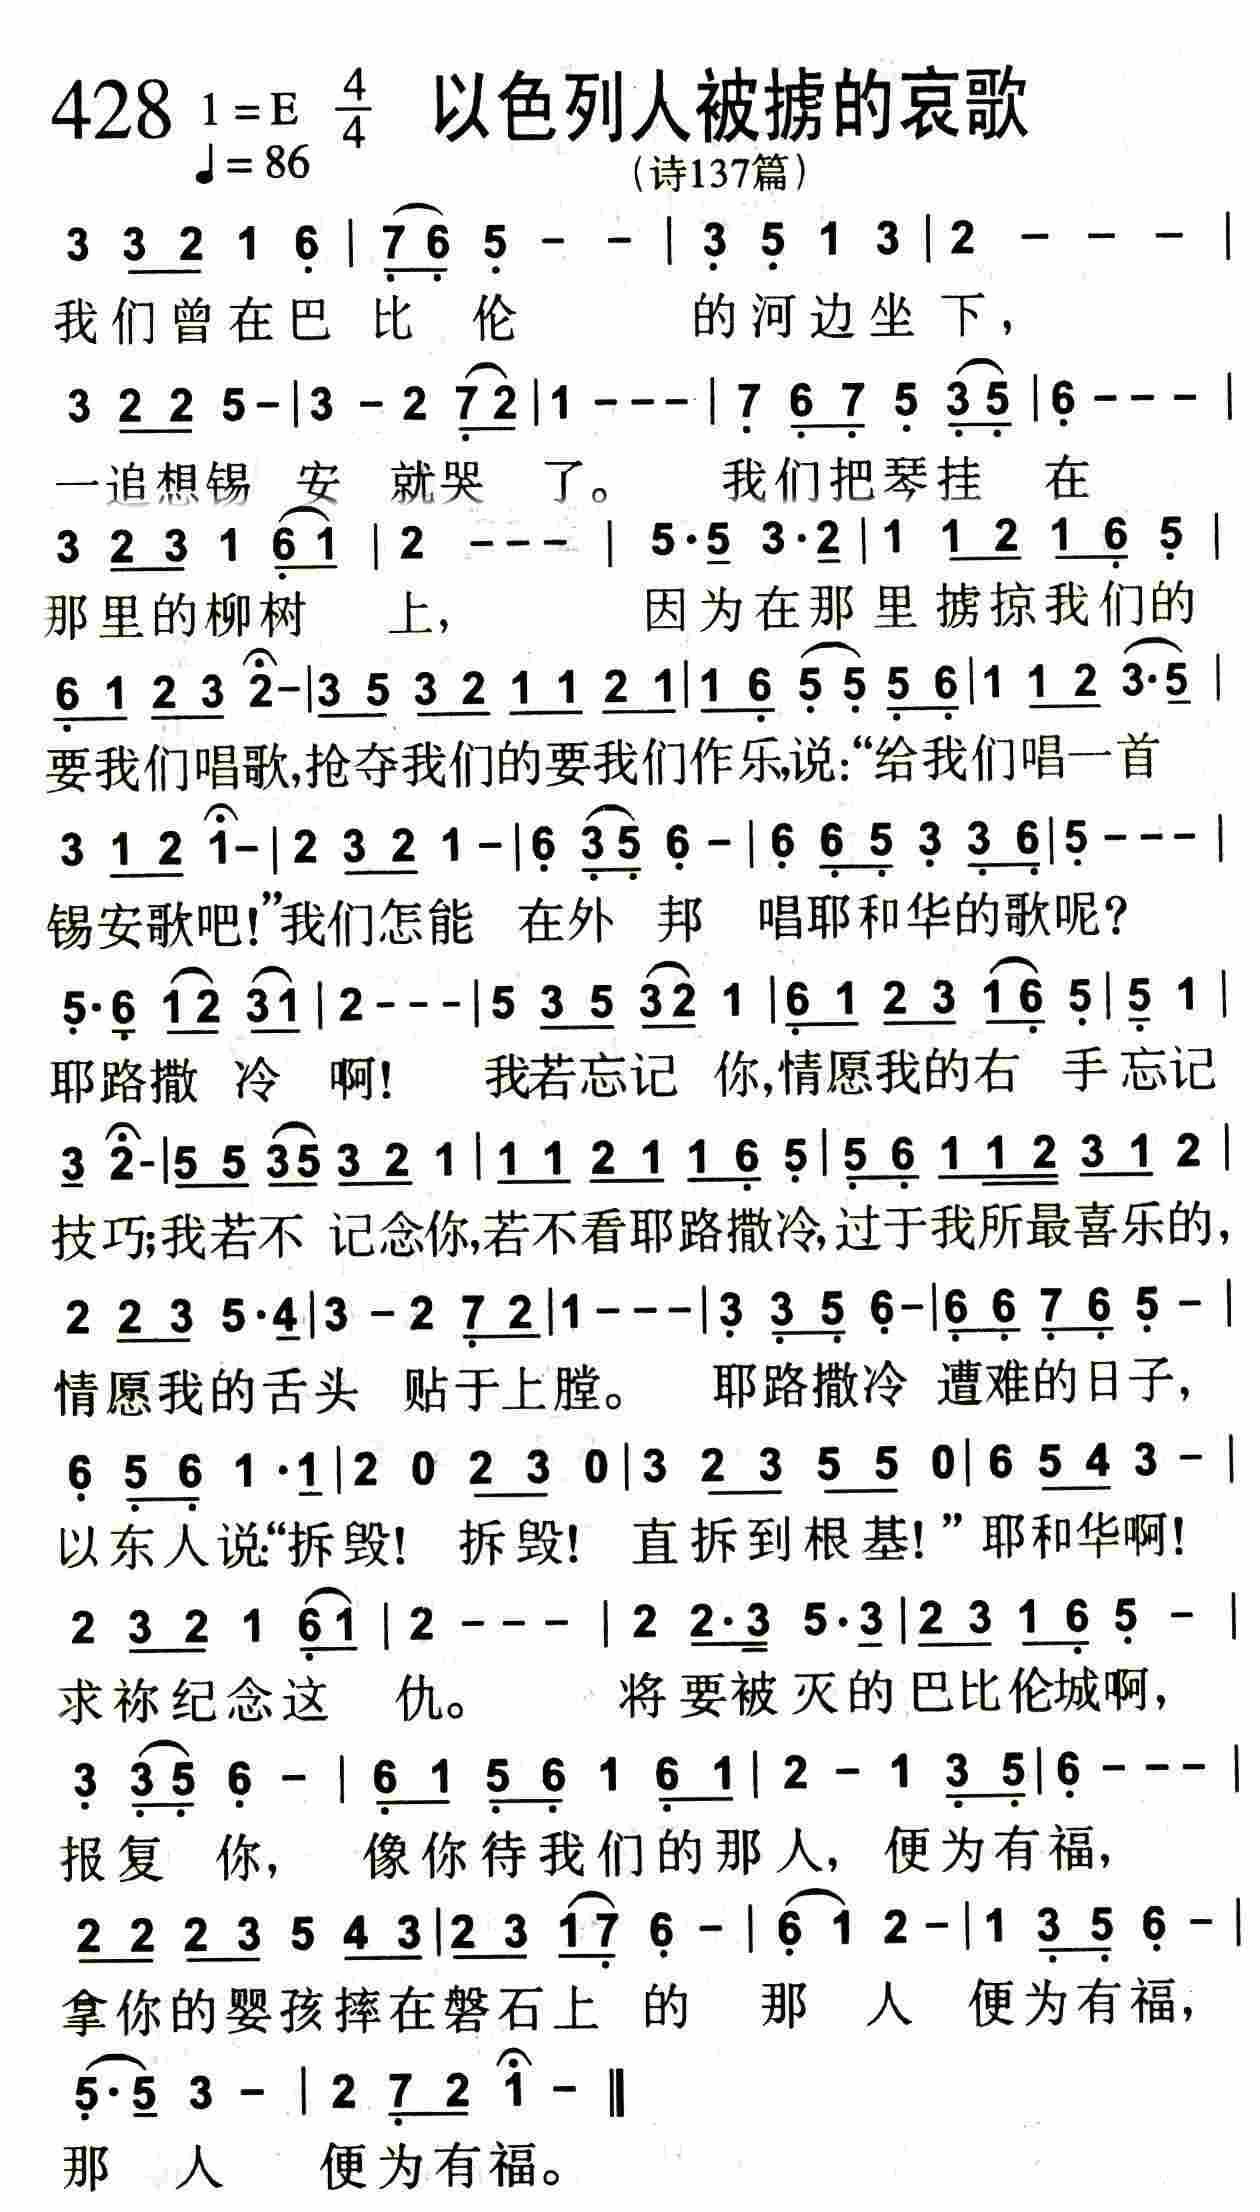 428 1=E 4/4 以色列人被掳的哀歌
♩=86 (诗137篇)
3 3 2 1 6 | 7 6 5 - - | 3 5 1 3 | 2 - - - |
我们曾在巴比伦 的河边坐下，
3 2 2 5 - | 3 - 2 7 2 | 1 - - - | 7 6 7 5 3 5 | 6 - - - |
一追想锡安就哭了。 我们把琴挂在
3 2 3 1 6 1 | 2 - - - | 5·5 3·2 | 1 1 2 1 6 5 |
那里的柳树上， 因为在那里掳掠我们的
6 1 2 3 2 - | 3 5 3 2 1 1 2 1 | 1 6 5 5 5 6 | 1 1 2 3·5 |
要我们唱歌，抢夺我们的要我们作乐，说：“给我们唱一首
3 1 2 1 - | 2 3 2 1 - | 6 3 5 6 - | 6 6 5 3 3 6 | 5 - - - |
锡安歌吧！”我们怎能在外邦唱耶和华的歌呢？
5·6 1 2 3 1 | 2 - - - | 5 3 5 3 2 1 | 6 1 2 3 1 6 5 | 5 1 |
耶路撒冷啊！ 我若忘记你，情愿我的右手忘记
3 2 - | 5 5 3 5 3 2 1 | 1 1 2 1 1 6 5 | 5 6 1 1 2 3 1 2 |
技巧；我若不记念你，若不看耶路撒冷，过于我所最喜乐的，
2 2 3 5·4 | 3 - 2 7 2 | 1 - - - | 3 3 5 6 - | 6 6 7 6 5 - |
情愿我的舌头贴于上膛。 耶路撒冷遭难的日子，
6 5 6 1·1 | 2 0 2 3 0 | 3 2 3 5 5 0 | 6 5 4 3 - |
以东人说：“拆毁！拆毁！直拆到根基！”耶和华啊！
2 3 2 1 6 1 | 2 - - - | 2 2·3 5·3 | 2 3 1 6 5 - |
求祢纪念这仇。 将要被灭的巴比伦城啊，
3 3 5 6 - | 6 1 5 6 1 6 1 | 2 - 1 3 5 | 6 - - - |
报复你，像你待我们的那人，便为有福，
2 2 2 3 5 4 3 | 2 3 1 7 6 - | 6 1 2 - | 1 3 5 6 - |
拿你的婴孩摔在磐石上的那人便为有福，
5·5 3 - | 2 7 2 1 - ‖
那人便为有福。